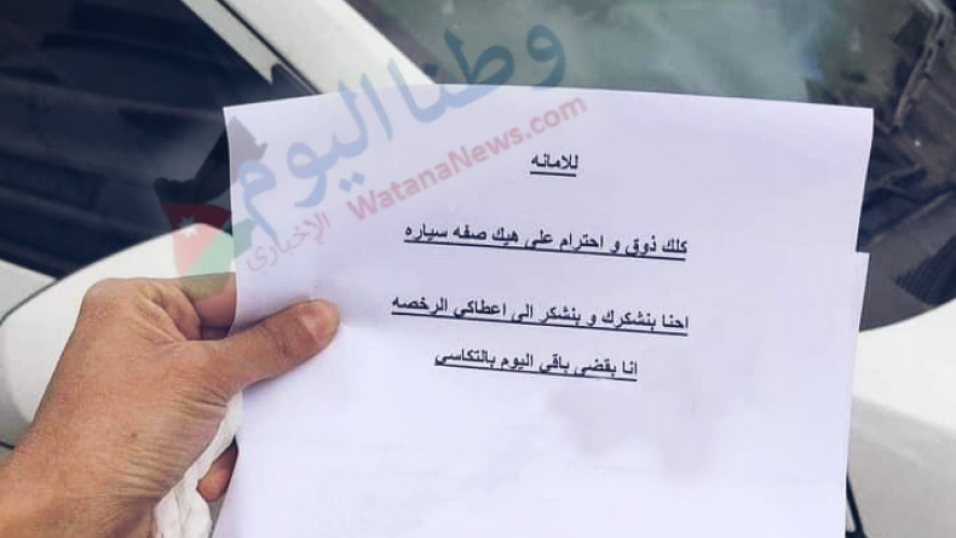 وطنا اليوم
الإخباري
WatanaNews.com
للامانه
كلك ذوق و احترام على هيك صفه سياره
احنا بنشكرك و بنشكر الى اعطاكي الرخصه
انا بقضي باقي اليوم بالتكاسي